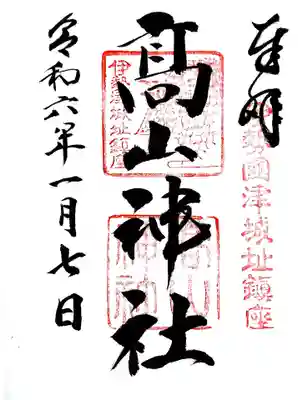 奉拝
勢國津城址鎮座
髙山神社
令和六年一月七日